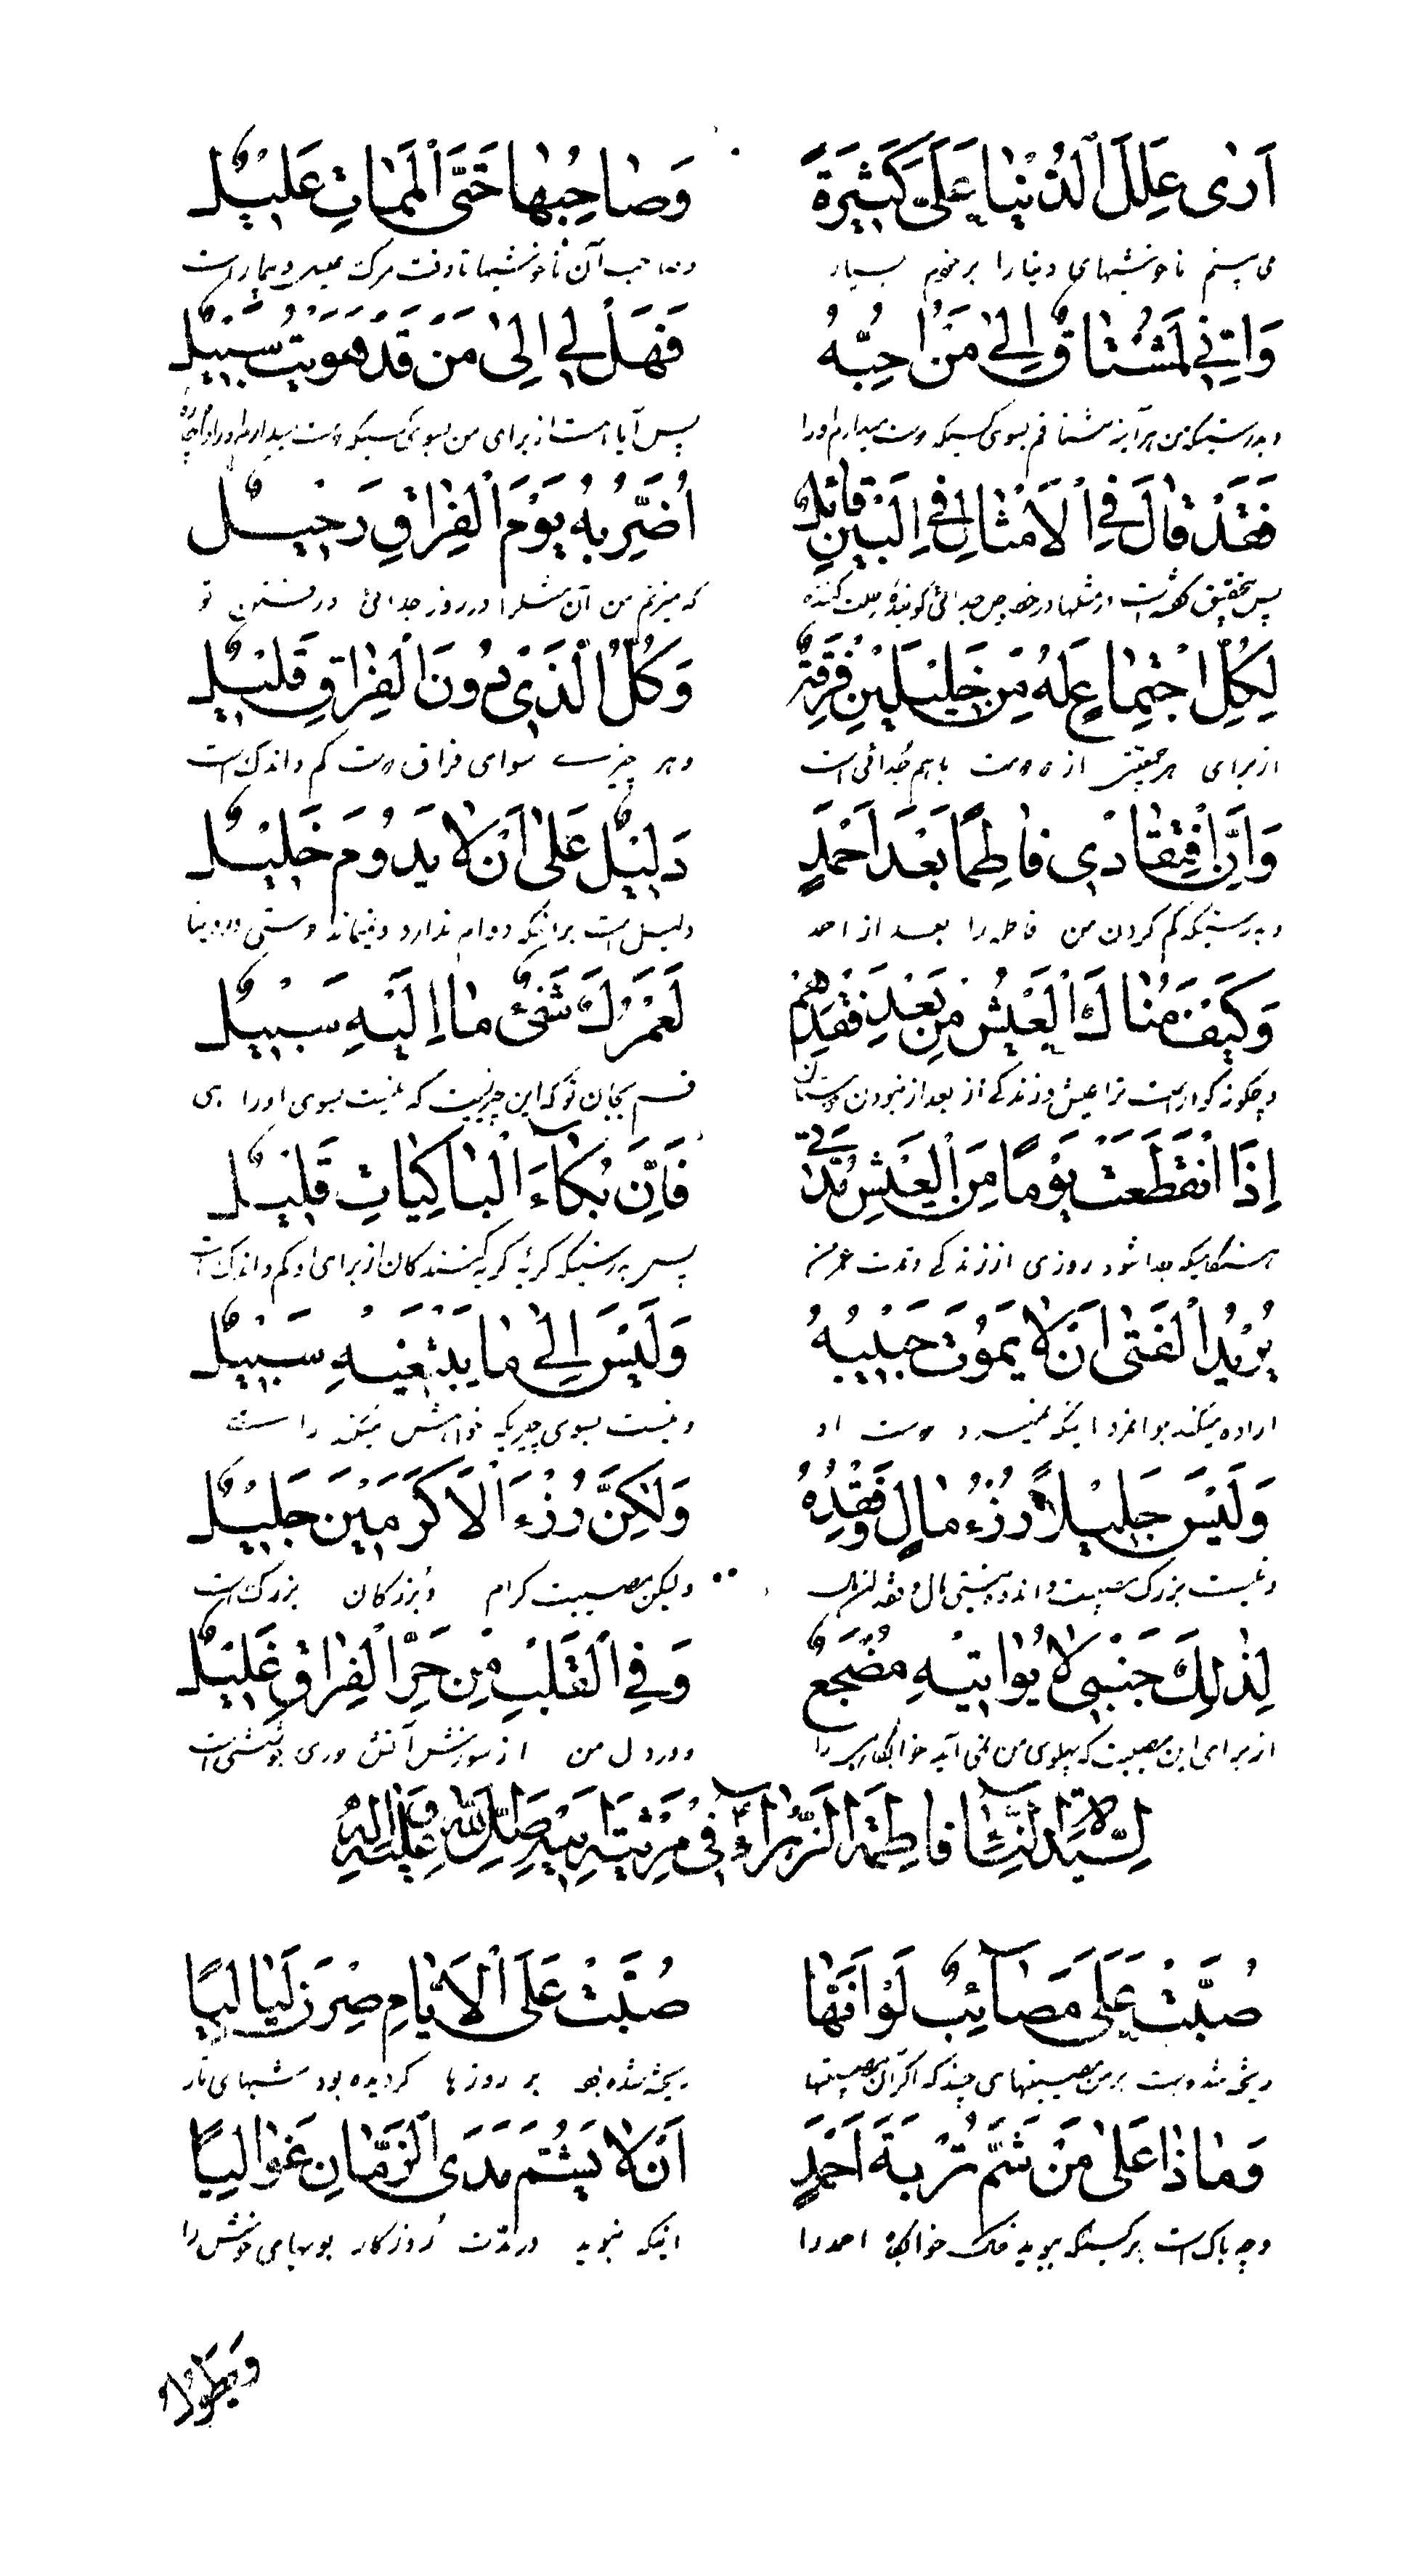 اَرٰى عِلَلَ الدُّنْيٰا عَلَىَّ كَثِيرَةً وَصٰاحِبُهٰا حَتَّى الْمَمٰاتِ عَلِيْلٌ
مى بينم ناخوشيهاى دنيا را بر خودم بسيار وصاحب آن ناخوشيها تا وقت مرك عليل و بيمار است
وَاِنّى لَمُشْتٰاقٌ اِلىٰ مَنْ اُحِبُّهُ فَهَلْ لى اِلىٰ مَنْ قَدْ هَوِيْتُ سَبِيْلٌ
وبدرستيكه من هرآينه مشتاقم بسوى كسيكه دوست ميدارم اورا پس آيا هست از براى من بسوى كسيكه دوست ميدارم اورا
فَقَدْ قٰالَ فِى الْاَمْثٰالِ فِى الْبَيْنِ قٰائِلٌ اُضَرُّ بِهِ يَوْمَ الْفِرٰاقِ رَحِيْلٌ
پس بتحقيق كفته است در مثلها در خصوص جدائى كوينده كه ميزنم من آن مثلرا در روز جدائى در رفتن تو
لِكُلِّ اجْتِمٰاعٍ مِنْ خَلِيْلَيْنِ فُرْقَةٌ وَكُلُّ الَّذى دُونَ الْفِرٰاقِ قَلِيْلٌ
از براى هر جمعيتى از دو دوست باهم جدائى است وهر چيزى سواى فراق دوست كم و اندك است
وَاِنَّ افْتِقٰادى فٰاطِمًا بَعْدَ اَحْمَدٍ دَلِيْلٌ عَلىٰ اَنْ لٰا يَدُومَ خَلِيْلٌ
وبدرستيكه كم كردن من فاطمه را بعد از احمد دليل است بر اينكه دوام ندارد و نميماند دوستى در دنيا
وَكَيْفَ هُنٰاكَ الْعَيْشُ مِنْ بَعْدِ فَقْدِهِمْ لَعَمْرُكَ شَىْءٌ مٰا اِلَيْهِ سَبِيْلٌ
وچكونه كوارا است ترا عيش و زندكى از بعد از نبودن دوستان قسم بجان تو كه اين چيزيست كه نيست بسوى او راهى
اِذَا انْقَطَعَتْ يَوْمًا مِنَ الْعَيْشِ مُدَّتى فَاِنَّ بُكٰاءَ الْبٰاكِيٰاتِ قَلِيْلٌ
هنكاميكه جدا شود روزى از زندكى مدت عمر من پس بدرستيكه كريه كريه كنندكان از براى او كم و اندك است
يُرْيدُ الْفَتٰى اَنْ لٰا يَمُوتَ حَبِيْبُهُ وَلَيْسَ اِلىٰ مٰا يَبْتَغِيْهِ سَبِيْلٌ
اراده ميكند جوانمرد اينكه نميرد دوست او ونيست بسوى چيزيكه خواهش ميكند راه
وَلَيْسَ جَلِيْلاً رُزْءُ مٰالٍ وَفَقْدُهُ وَلٰكِنَّ رُزْءَ الْاَكْرَمِيْنَ جَلِيْلٌ
ونيست بزرك مصيبت و اندوه نيستى مال و فقد وليكن مصيبت كرام و بزركان بزرك است
لِذٰلِكَ جَنْبى لٰا يُؤٰاتِيْهِ مَضْجَعٌ وَفِى الْقَلْبِ مِنْ حَرِّ الْفِرٰاقِ غَلِيْلٌ
از براى اين مصيبت كه پهلوى من نمى آيد خوابكاه را ودر دل من از سوزش آتش دورى جوششى است
لِسَيِّدَةِ النِّسٰاءِ فٰاطِمَةَ الزَّهْرٰاءِ فى مَرْثِيَةِ اَبِيْهٰا صَلَّى اللّٰهُ عَلَيْهِ وَاٰلِهِ
صُبَّتْ عَلَىَّ مَصٰآئِبٌ لَوْ اَنَّهٰا صُبَّتْ عَلَى الْاَيّٰامِ صِرْنَ لَيٰالِيًا
ريخته شده است بر من مصيبتهاى چند كه اكر آن مصيبتها ريخته شده بود بر روزها كرديده بود شبهاى تار
وَمٰاذٰا عَلىٰ مَنْ شَمَّ تُرْبَةَ اَحْمَدٍ اَنْ لٰا يَشُمَّ مَدَى الزَّمٰانِ غَوٰالِيًا
وچه باك است بر كسيكه ببويد خاك خوابكاه احمد را اينكه نبويد در مدت روزكار بويهاى خوش را